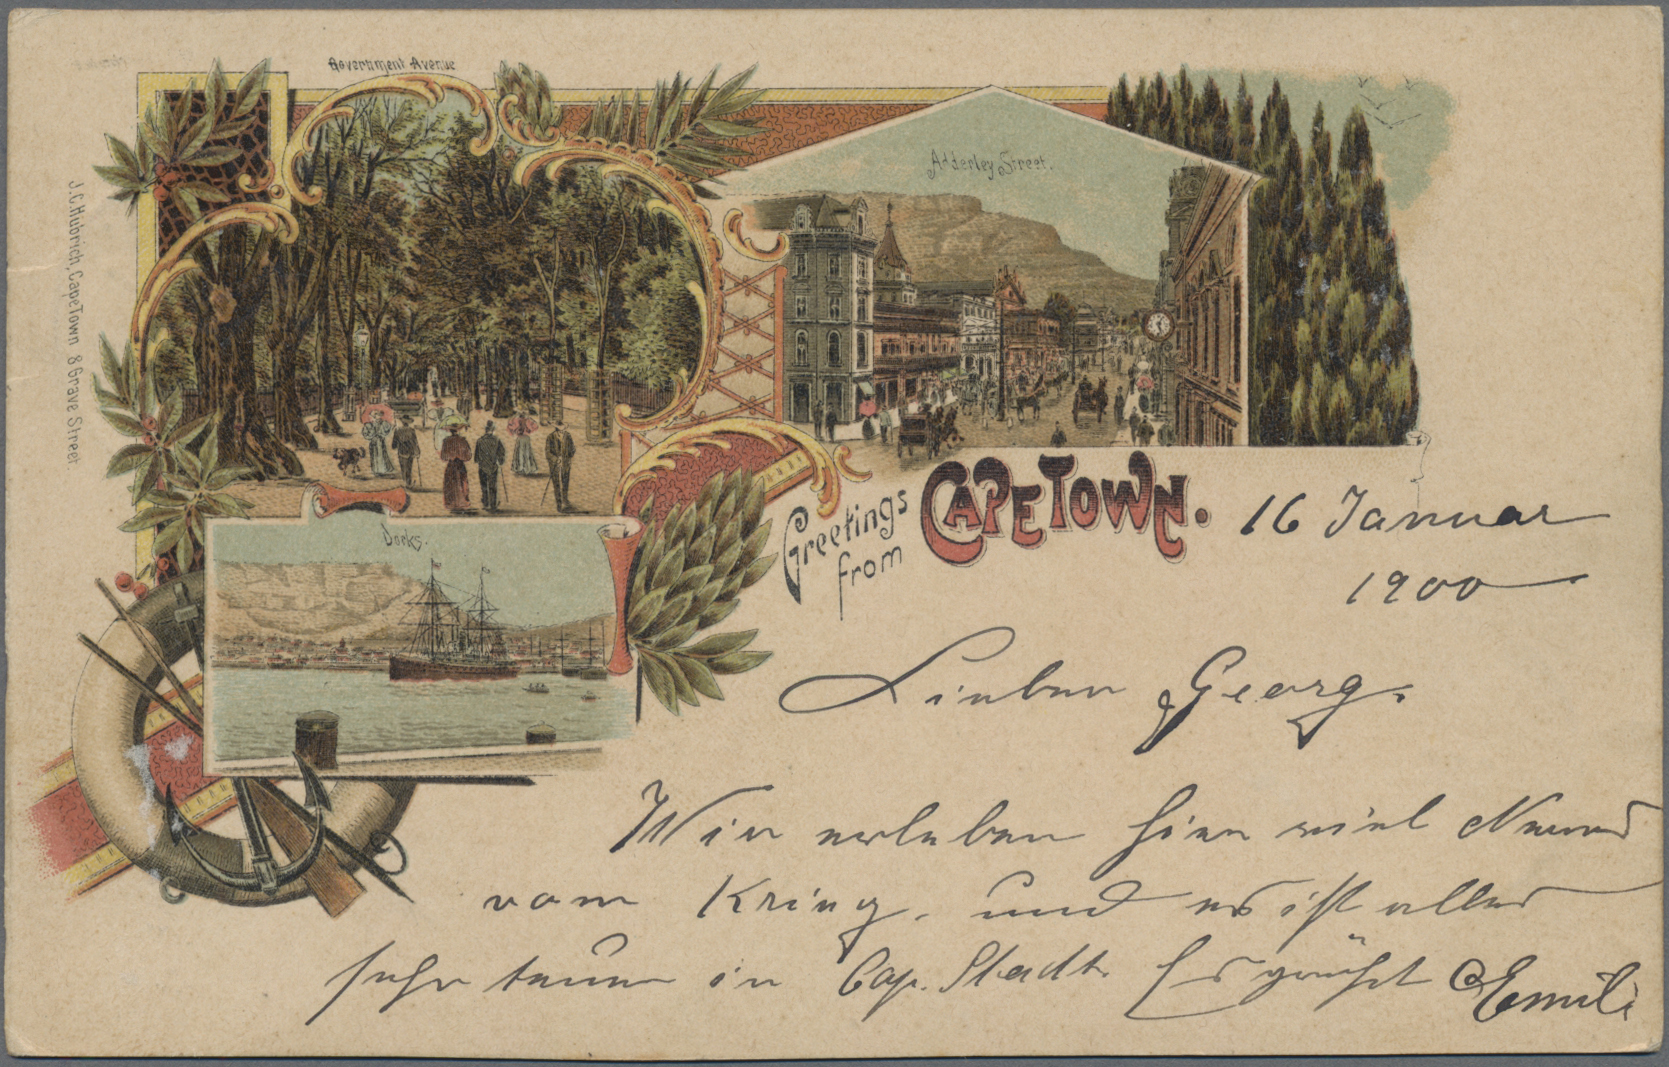 Government Avenue
Adderley Street.
J.C.Hubrich, CapeTown 8 Grave Street.
Docks.
Greetings from CAPE TOWN.
16 Januar
1900
Lieber Georg.
Wir erleben hier viel Neues
vom Krieg. und es ist alles
sehr teuer in Cap. Stadt. Es grüßt Emil